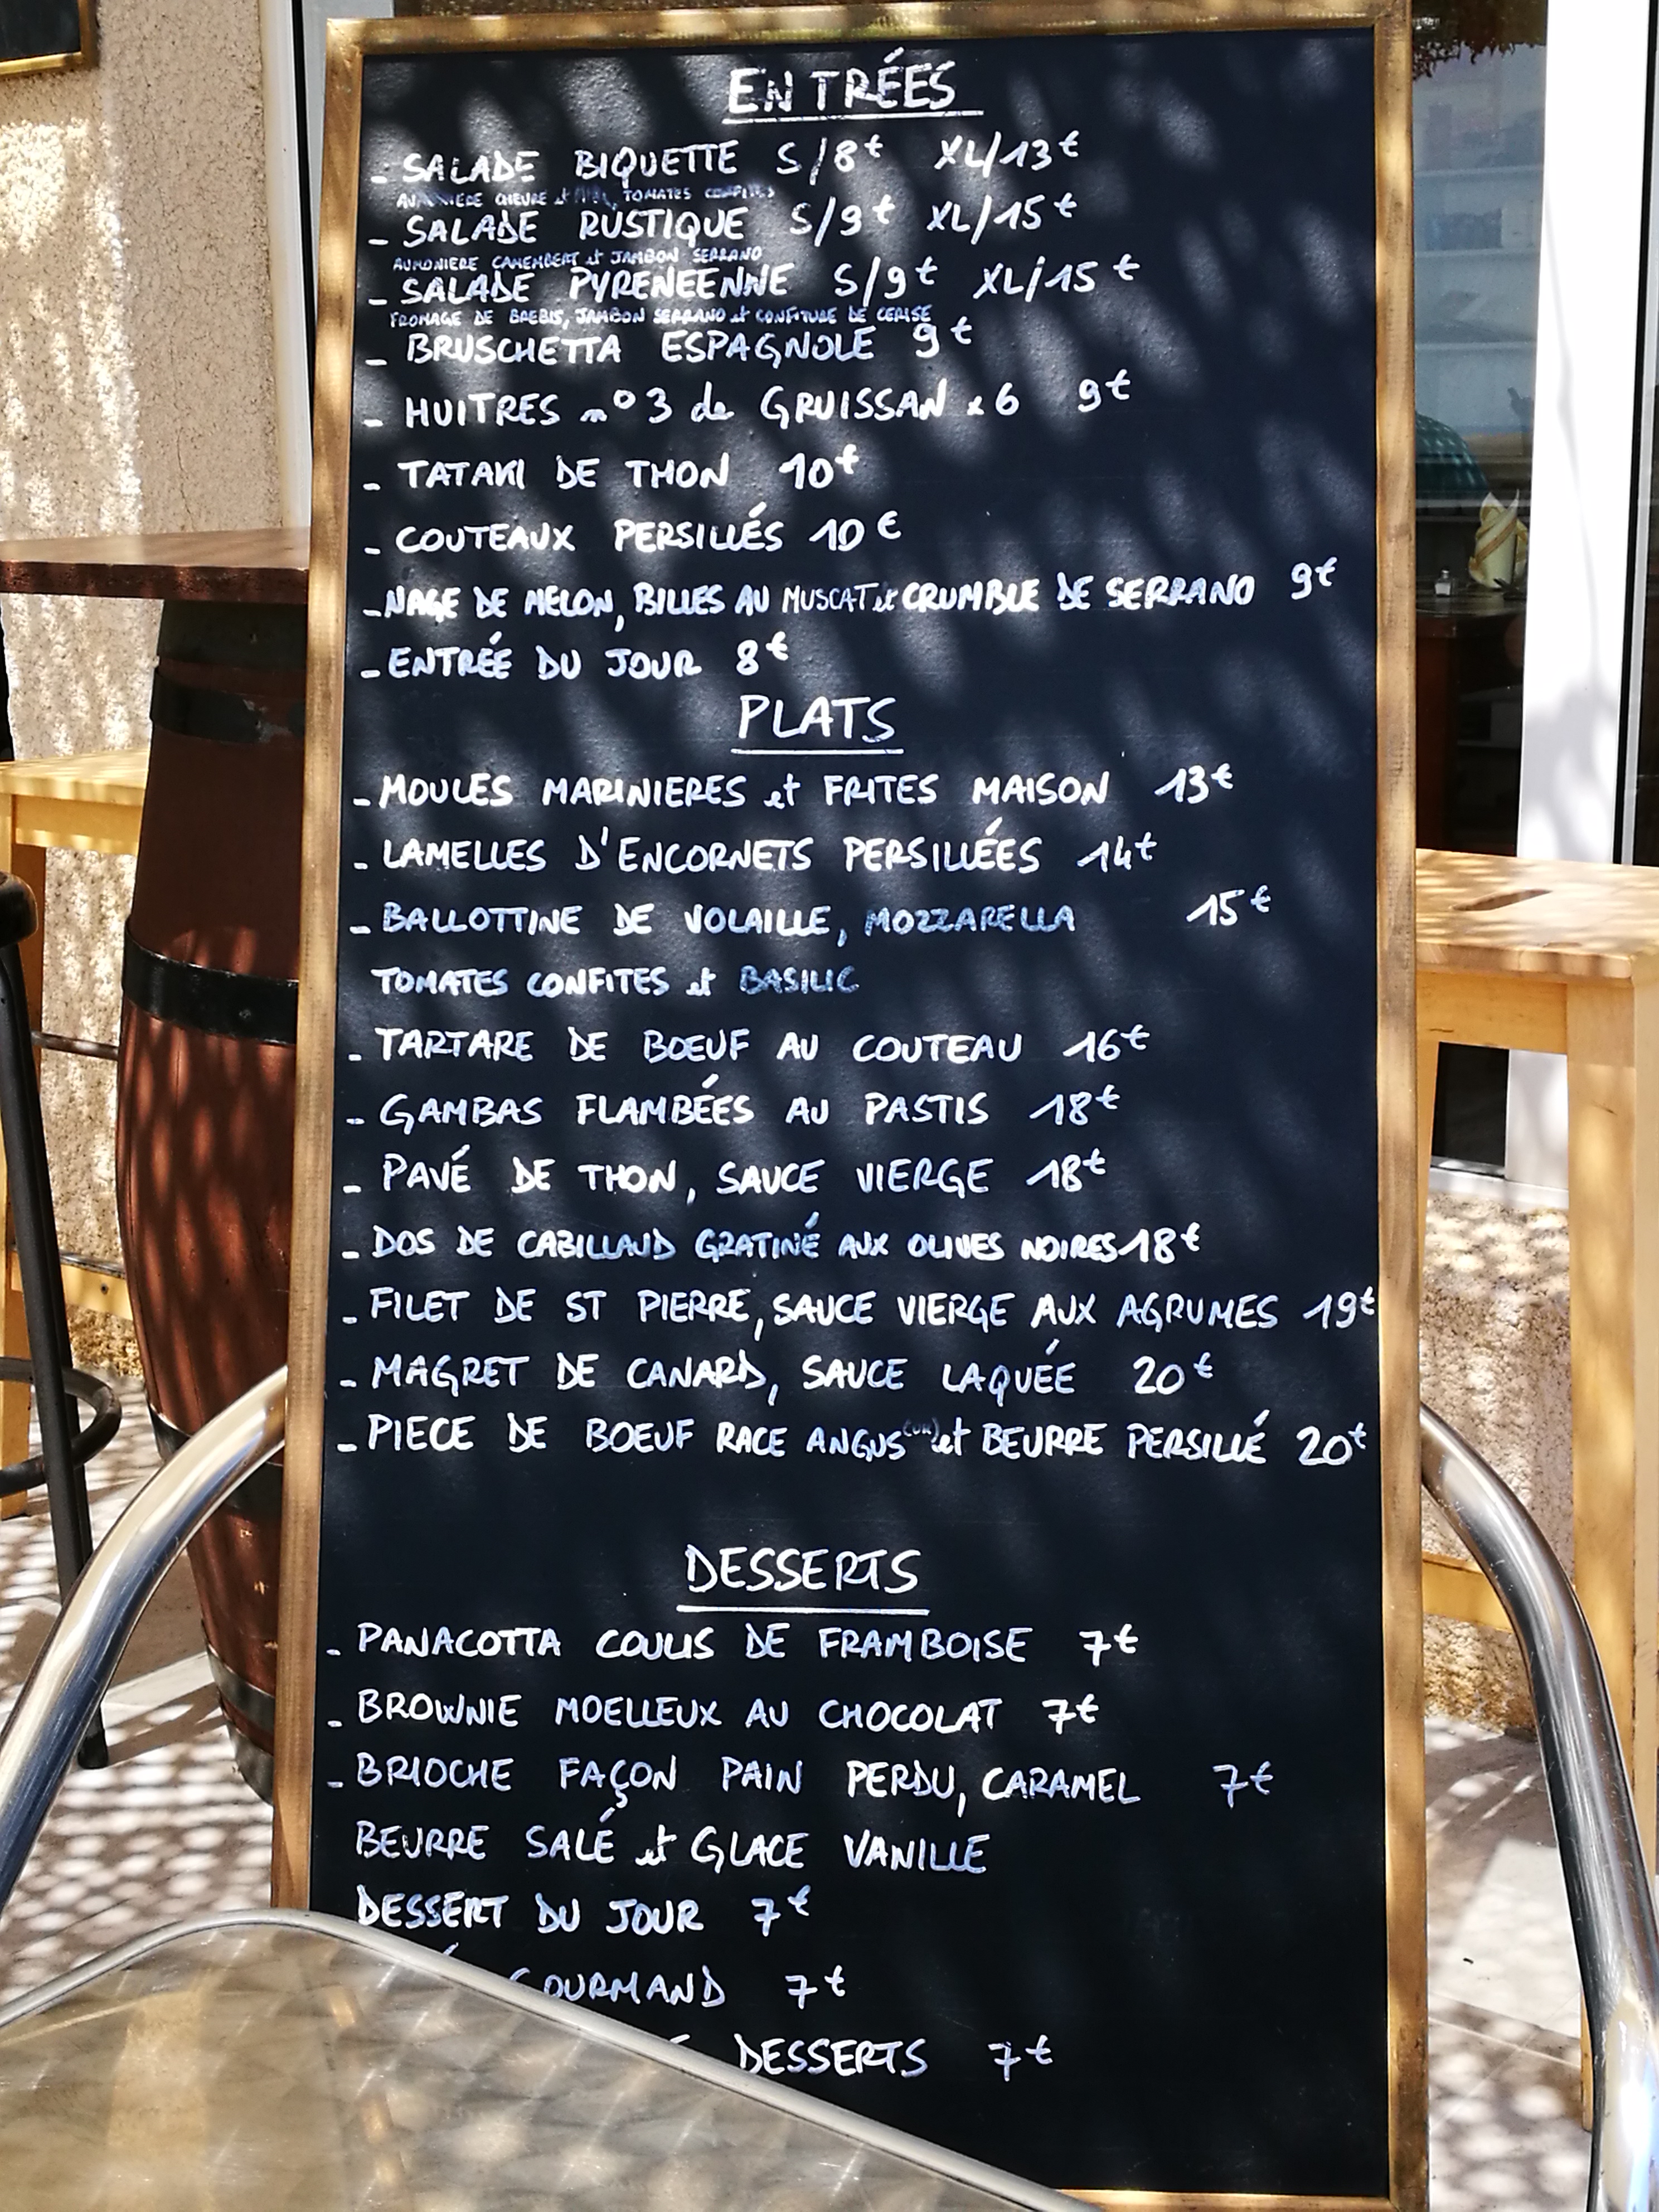 ENTRÉES
- SALADE BIQUETTE S/8€ XL/13€
CHEVRE et TOMATES CONFITES
- SALADE RUSTIQUE S/9€ XL/15€
AUMONIERE CAMEMBERT et JAMBON SERRANO
- SALADE PYRENEENNE S/9€ XL/15€
FROMAGE DE BREBIS, JAMBON SERRANO et CONFITURE DE CERISE
- BRUSCHETTA ESPAGNOLE 9€
- HUITRES n°3 de GRUISSAN x6 9€
- TATAKI DE THON 10€
- COUTEAUX PERSILLÉS 10€
- NAGE DE MELON, BILLES AU MUSCAT et CRUMBLE DE SERRANO 9€
- ENTRÉE DU JOUR 8€
PLATS
- MOULES MARINIERES et FRITES MAISON 13€
- LAMELLES D'ENCORNETS PERSILLÉES 14€
- BALLOTTINE DE VOLAILLE, MOZZARELLA 15€
TOMATES CONFITES et BASILIC
- TARTARE DE BOEUF AU COUTEAU 16€
- GAMBAS FLAMBÉES AU PASTIS 18€
- PAVÉ DE THON, SAUCE VIERGE 18€
- DOS DE CABILLAUD GRATINÉ AUX OLIVES NOIRES 18€
- FILET DE ST PIERRE, SAUCE VIERGE AUX AGRUMES 19€
- MAGRET DE CANARD, SAUCE LAQUÉE 20€
- PIECE DE BOEUF RACE ANGUS et BEURRE PERSILLÉ 20€
DESSERTS
- PANACOTTA COULIS DE FRAMBOISE 7€
- BROWNIE MOELLEUX AU CHOCOLAT 7€
- BRIOCHE FAÇON PAIN PERDU, CARAMEL 7€
BEURRE SALÉ et GLACE VANILLE
DESSERT DU JOUR 7€
GOURMAND 7€
DESSERTS 7€